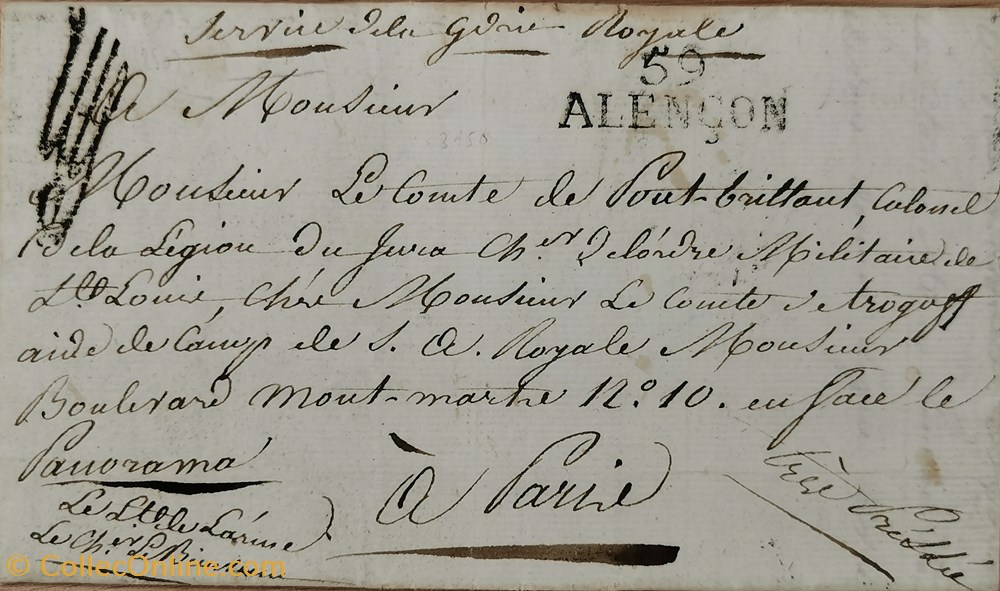 Service de la Gdrie Royale
59
ALENÇON
A Monsieur
3050
Monsieur Le Comte de Pont-brittant, Colonel
de la Légion du Jura Ch.er De l'órdre Militaire de
St Louis, Chés Monsieur Le Comte de trogoff
aide de Camp de S. A. Royale Monsieur
Boulevard Mont-martre N.o 10. en face le
Panorama
à Paris
très Préssée
Le Lt. de L'arme
Le Ch.er
© CollecOnline.com